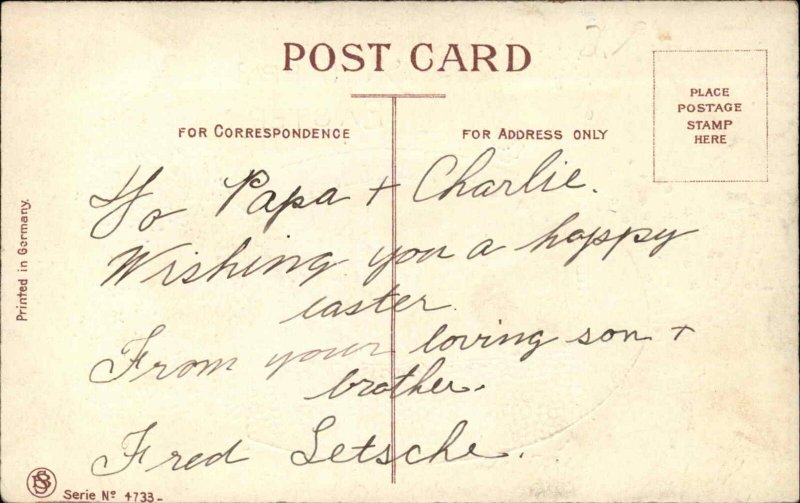 POST CARD
FOR CORRESPONDENCE
FOR ADDRESS ONLY
PLACE
POSTAGE
STAMP
HERE
To Papa + Charlie.
Wishing you a happy
easter.
From your loving son +
brother.
Fred Letsche.
Printed in Germany.
Serie No 4733-